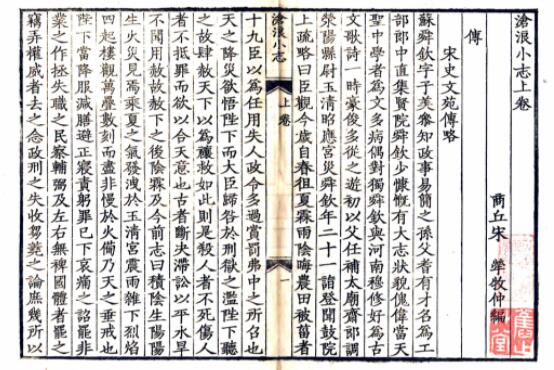 滄浪小志上卷
商丘宋犖牧仲編
傳
宋史文苑傳略
蘇舜欽字子美參知政事易簡之孫父耆有才名為工
部郎中直集賢院舜欽少慷慨有大志狀貌傀偉當天
聖中學者為文多病偶對獨舜欽與河南穆修好為古
文歌詩一時豪俊多從之遊初以父任補太廟齋郎調
滎陽縣尉玉清昭應宮災舜欽年二十一詣登聞鼓院
上疏略曰臣觀今歲自春徂夏霖雨陰晦農田被菑者
滄浪小志
上卷
一
十九臣以為任用失人政令多過賞罰弗中之所召也
天之降災欲悟陛下而大臣歸咎於刑獄之濫陛下聽
之故肆赦天下以為禳救如此則是殺人者不死傷人
者不抵罪而欲以合天意也古者斷決滯訟以平水旱
不聞用赦故赦下之後陰霖及今前志曰積陰生陽陽
生火災見焉乘夏之氣發洩於玉清宮震雨雜下烈焰
四起樓觀萬疊數刻而盡非慢於火備乃天之垂戒也
陛下當降服減膳避正寢責躬罪己下哀痛之詔罷非
業之作拯失職之民察輔弼及左右無裨國體者罷之
竊弄權威者去之念政刑之失收芻蕘之論庶幾所以